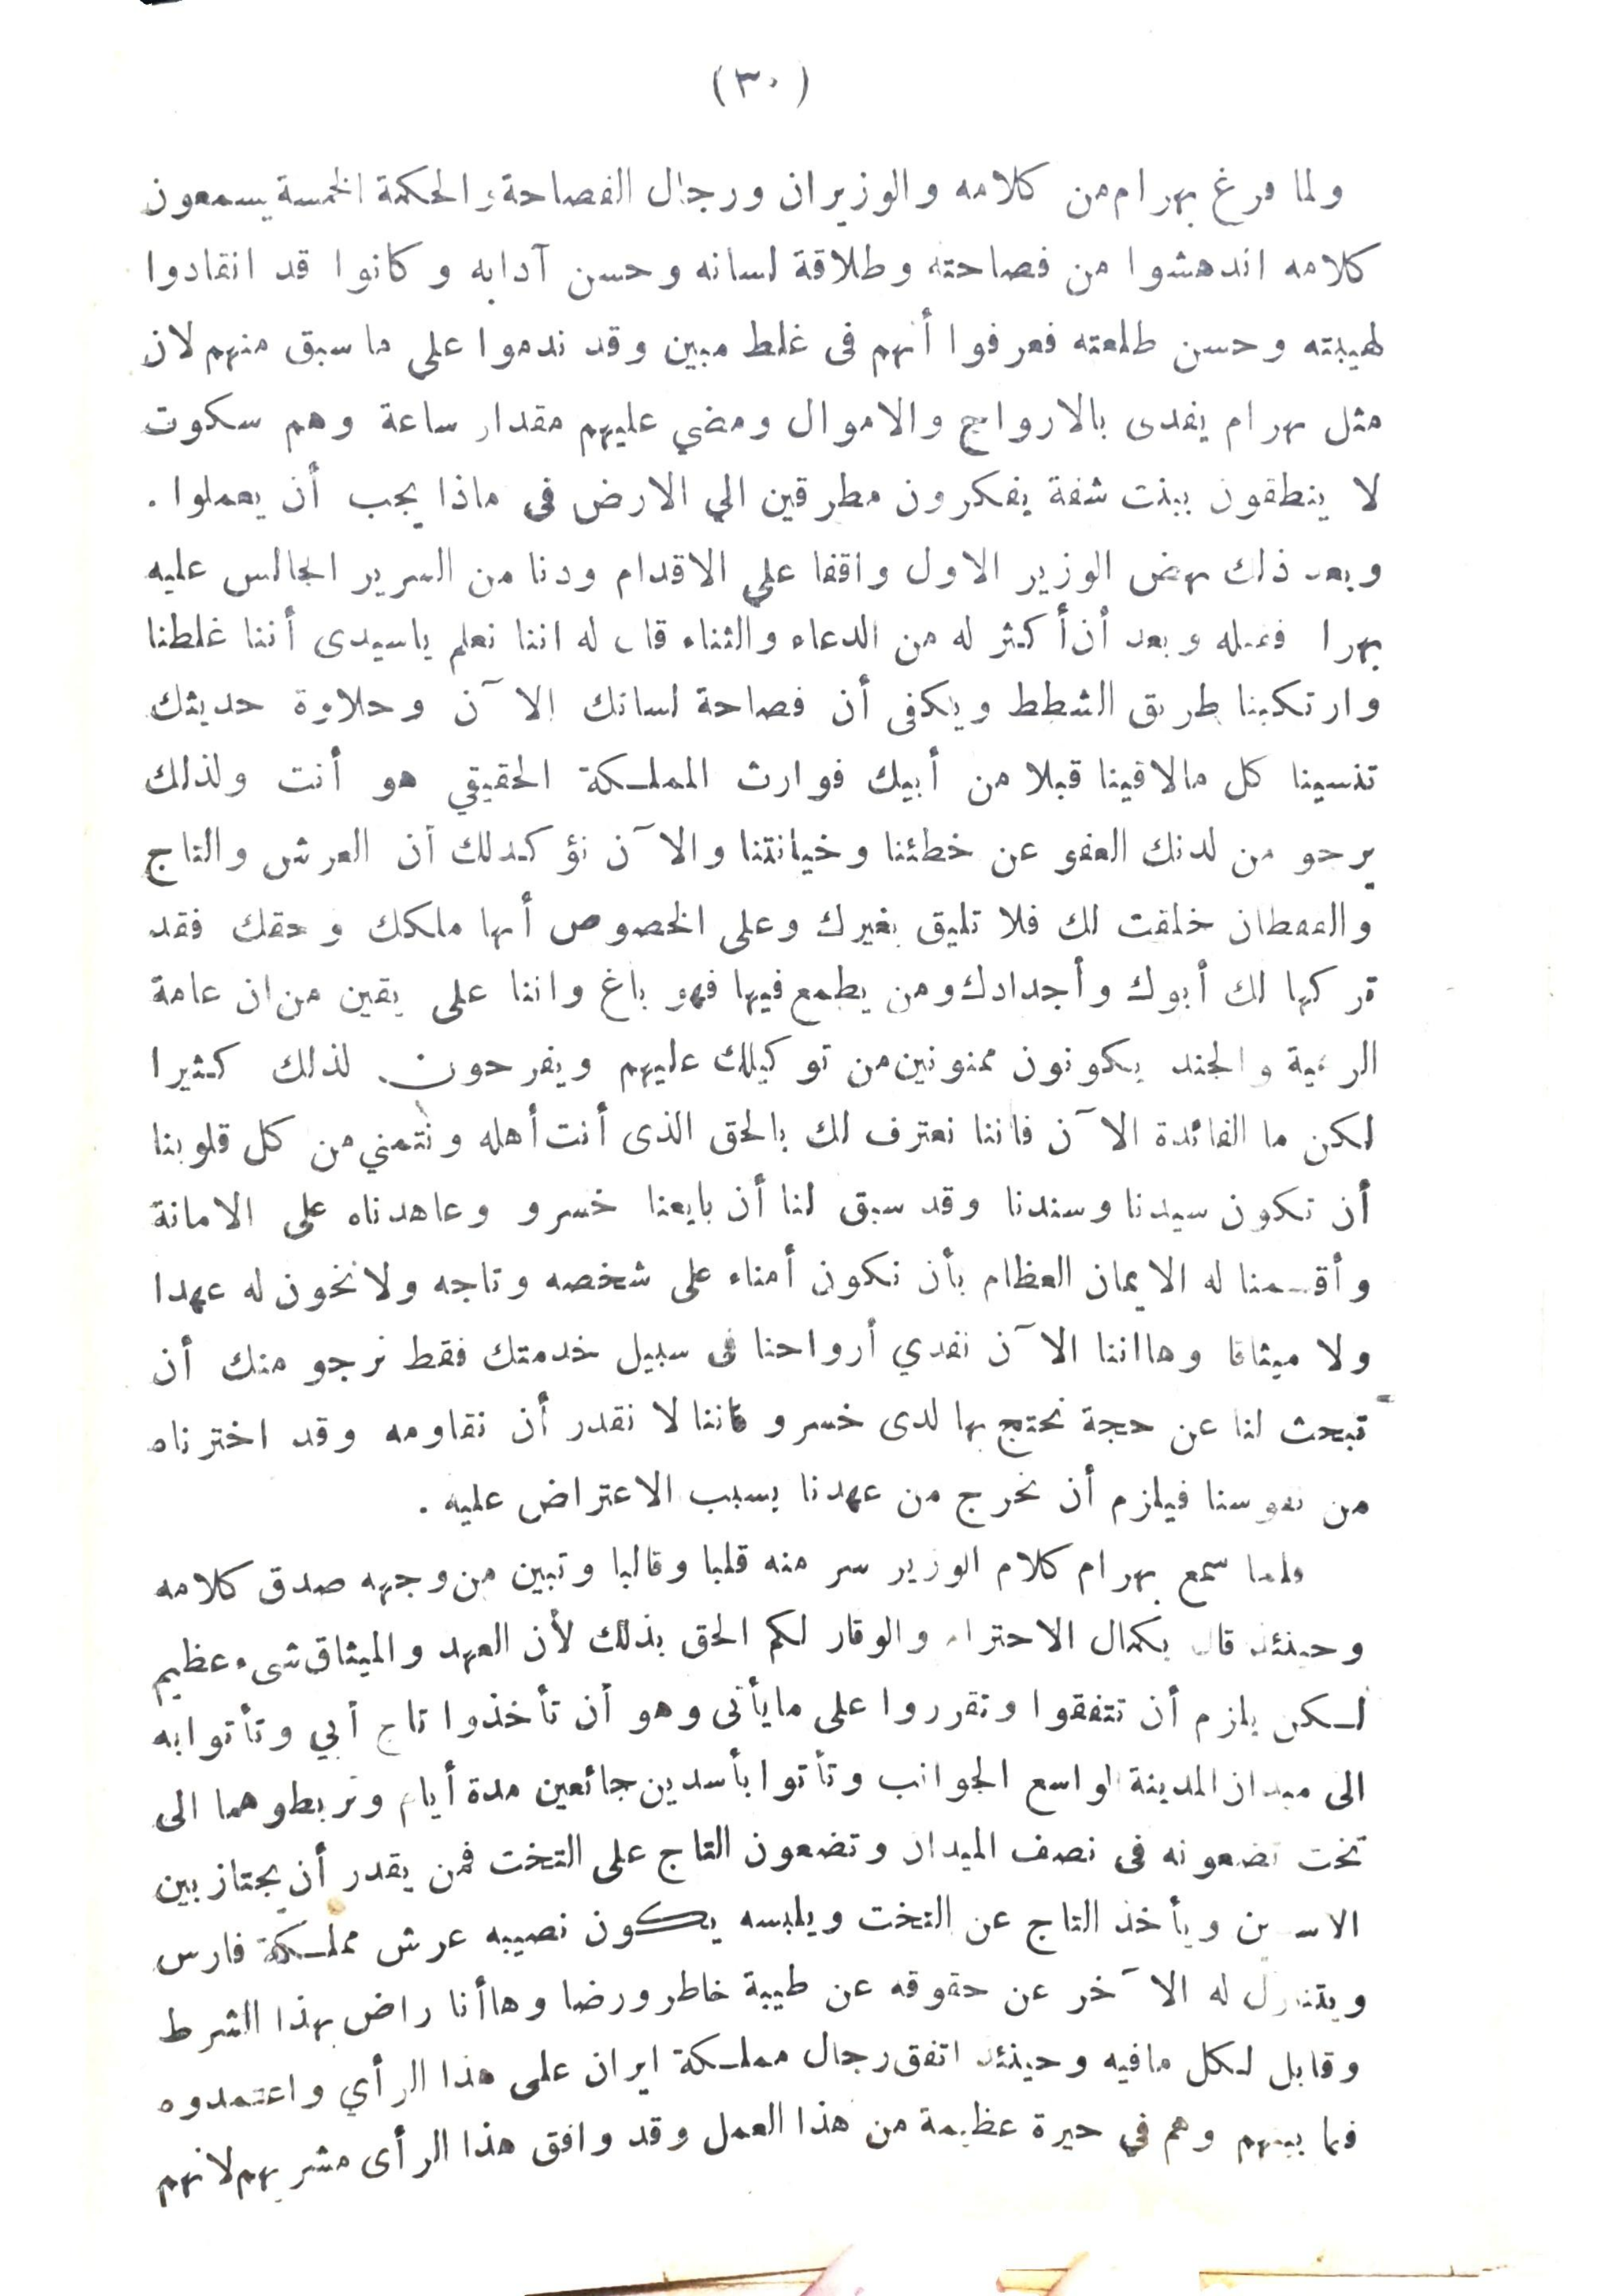 (٣٠)
ولما فرغ بهرام من كلامه والوزيران ورجال الفصاحة والحكمة الخمسة يسمعون
كلامه اندهشوا من فصاحته وطلاقة لسانه وحسن آدابه وكانوا قد انقادوا
لهيبته وحسن طلعته فعرفوا أنهم فى غلط مبين وقد ندموا على ما سبق منهم لان
مثل بهرام يفدى بالارواح والاموال ومضي عليهم مقدار ساعة وهم سكوت
لا ينطقون ببنت شفة يفكرون مطرقين الي الارض فى ماذا يجب أن يعملوا .
وبعد ذلك نهض الوزير الاول واقفا علي الاقدام ودنا من السرير الجالس عليه
بهرا فقبله وبعد أن أكثر له من الدعاء والثناء قال له اننا نعلم ياسيدى أننا غلطنا
وارتكبنا طريق الشطط ويكفى أن فصاحة لسانك الآن وحلاوة حديثك
تنسينا كل مالاقينا قبلا من أبيك فوارث المملكة الحقيقي هو أنت ولذلك
نرجو من لدنك العفو عن خطئنا وخيانتنا والآن نؤكدلك أن العرش والتاج
والقفطان خلقت لك فلا تليق بغيرك وعلى الخصوص أنها ملكك وحقك فقد
تركها لك أبوك وأجدادك ومن يطمع فيها فهو باغ واننا على يقين من ان عامة
الرعية والجند يكونون ممنونين من توكيلك عليهم ويفرحون لذلك كثيرا
لكن ما الفائدة الآن فاننا نعترف لك بالحق الذى أنت أهله ونتمني من كل قلوبنا
أن تكون سيدنا وسندنا وقد سبق لنا أن بايعنا خسرو وعاهدناه على الامانة
وأقسمنا له الايمان العظام بأن نكون أمناء على شخصه وتاجه ولا نخون له عهدا
ولا ميثاقا وهااننا الآن نفدي أرواحنا فى سبيل خدمتك فقط نرجو منك أن
تبحث لنا عن حجة نحتج بها لدى خسرو فاننا لا نقدر أن نقاومه وقد اخترناه
من نفوسنا فيلزم أن نخرج من عهدنا بسبب الاعتراض عليه .
ولما سمع بهرام كلام الوزير سر منه قلبا وقالبا وتبين من وجهه صدق كلامه
وحينئذ قال بكمال الاحترام والوقار لكم الحق بذلك لأن العهد والميثاق شىء عظيم
لكن يلزم أن تتفقوا وتقرروا على مايأتى وهو أن تأخذوا تاج أبي وتأتوا به
الى ميدان المدينة الواسع الجوانب وتأتوا بأسدين جائعين مدة أيام وتربطوهما الى
تخت تضعونه فى نصف الميدان وتضعون التاج على التخت فمن يقدر أن يجتاز بين
الاسدين ويأخذ التاج عن التخت ويلبسه يكون نصيبه عرش مملكة فارس
ويتنازل له الآخر عن حقوقه عن طيبة خاطر ورضا وهاأنا راض بهذا الشرط
وقابل لكل مافيه وحينئذ اتفق رجال مملكة ايران على هذا الرأي واعتمدوه
فيما بينهم وهم في حيرة عظيمة من هذا العمل وقد وافق هذا الرأى مشربهم لانهم